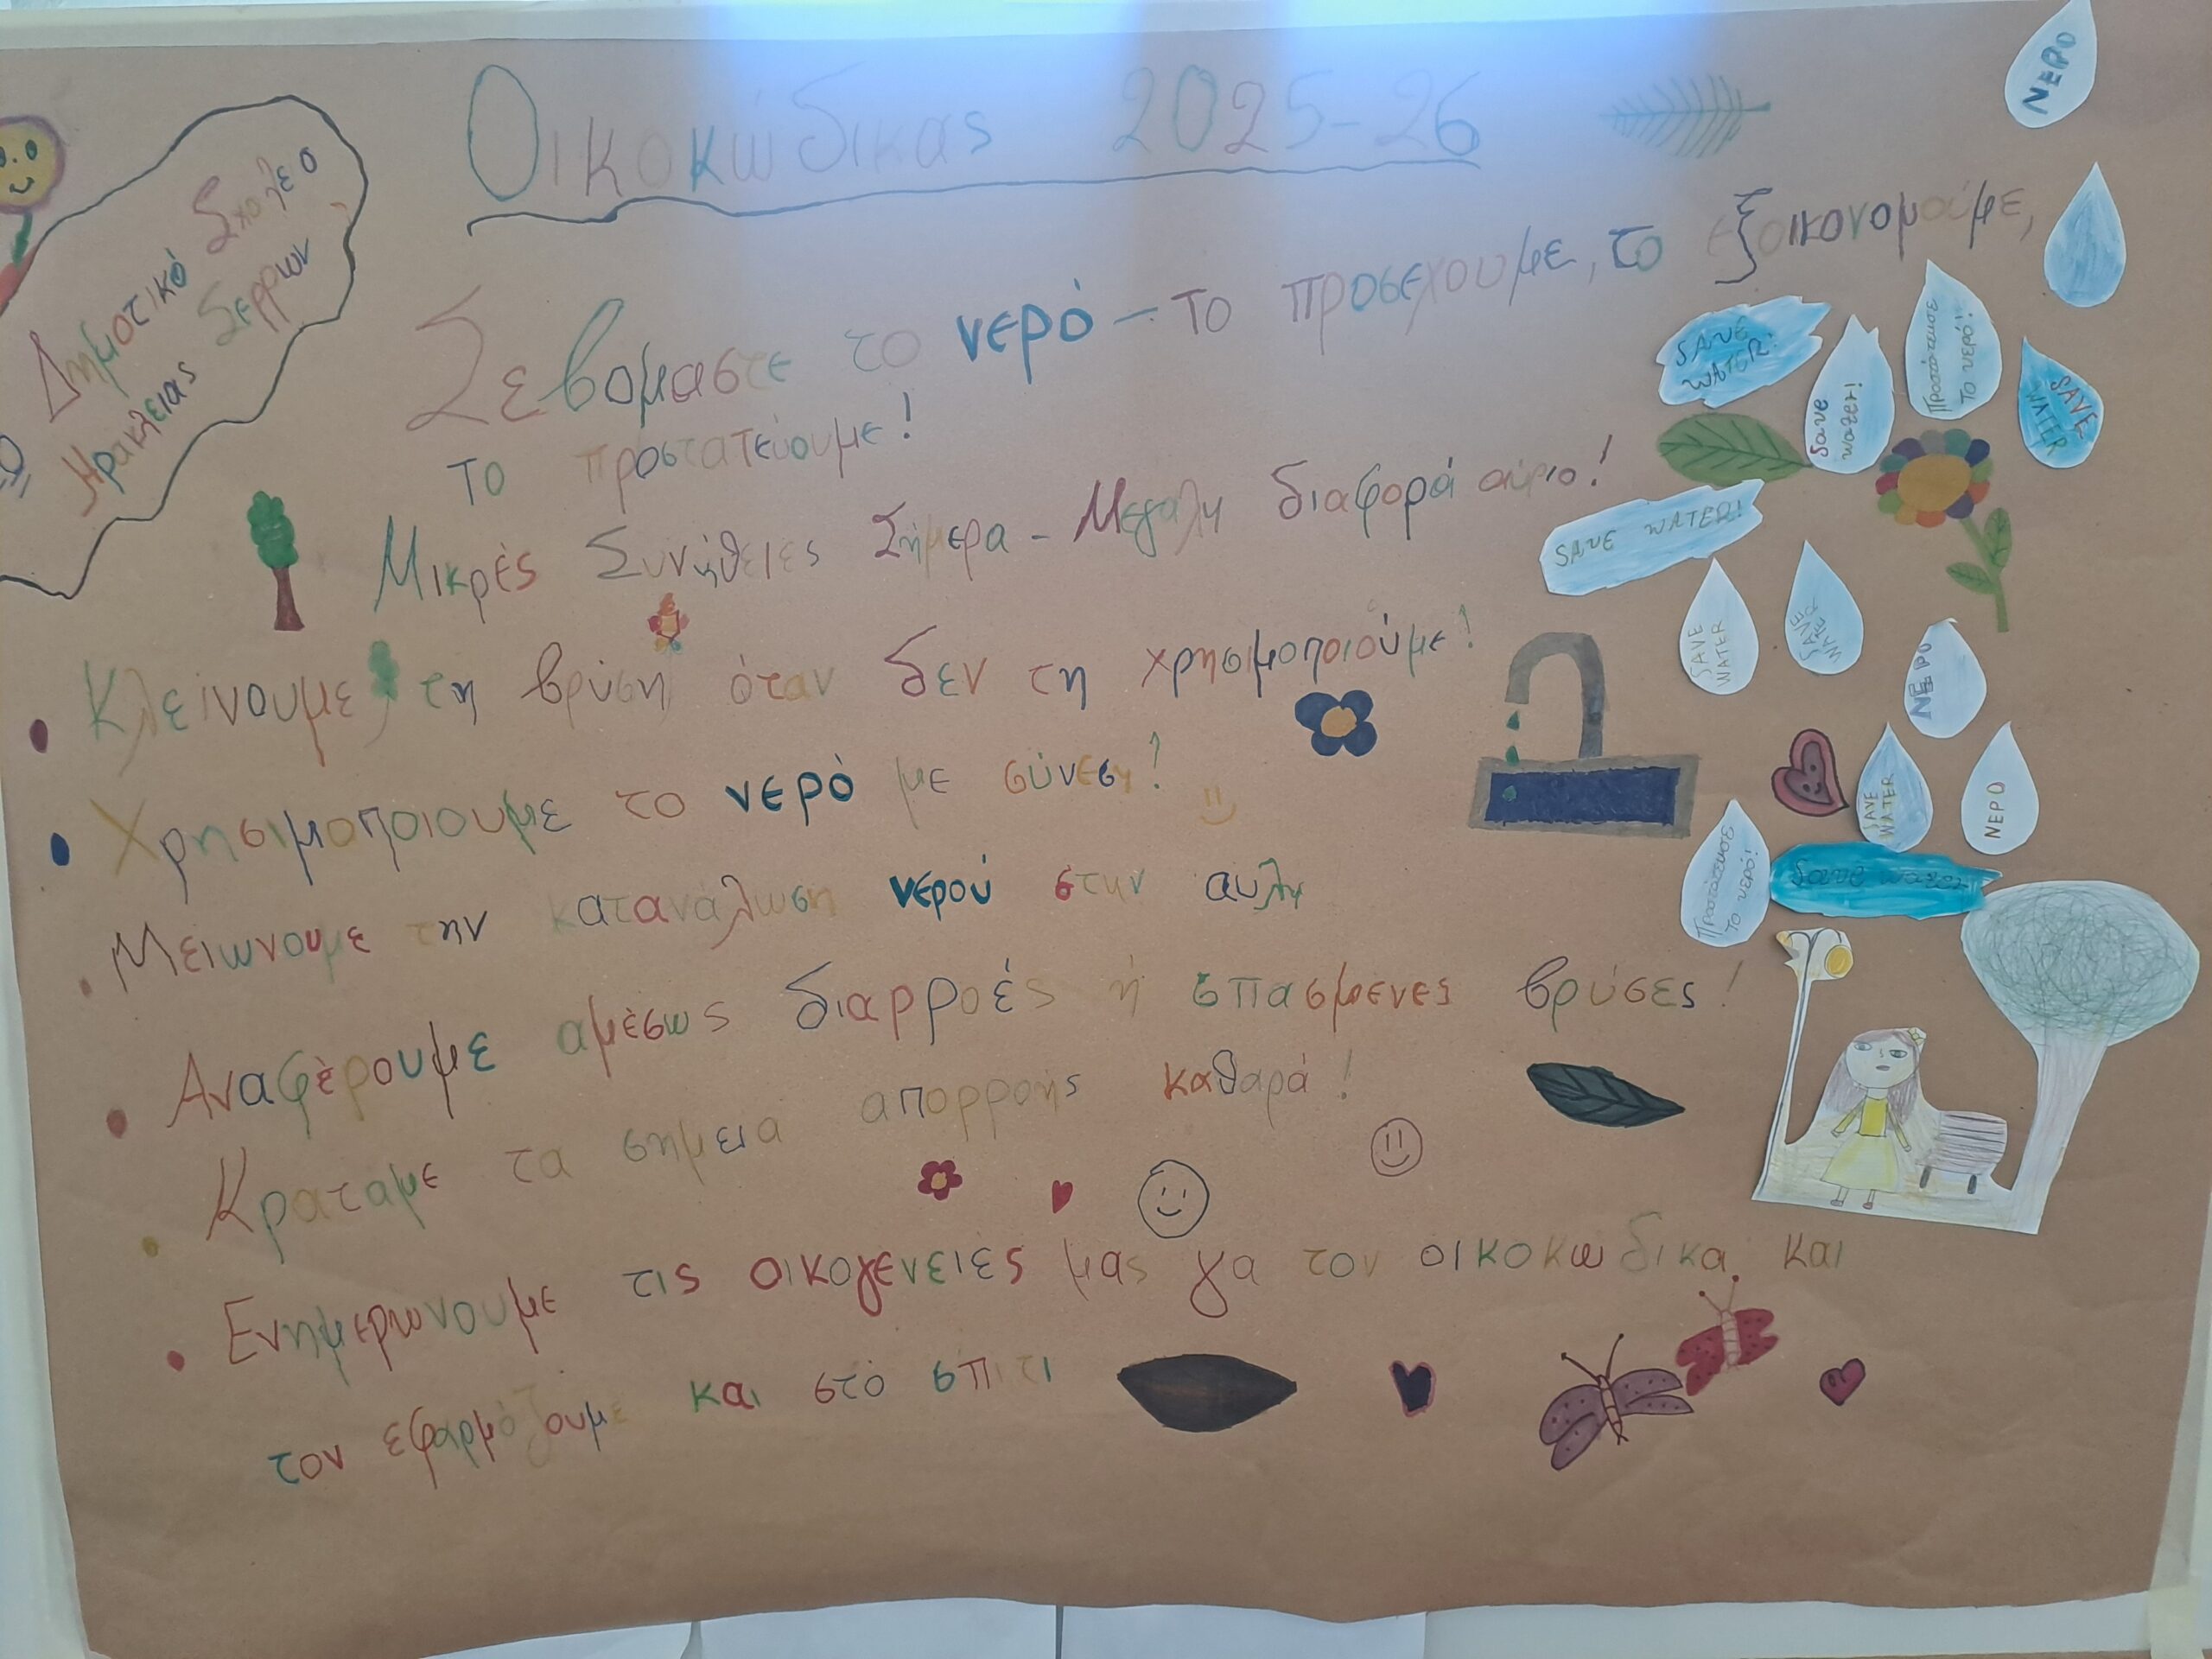 Οικοκώδικας 2025-26
Δημοτικό Σχολείο
Ηρακλειας Σερρων
Σεβομαστε το νερό - το προσεχουμε, το εξοικονομούμε,
το προστατεύουμε!
Μικρές Συνήθειες Σήμερα - Μεγαλη διαφορά αύριο!
• Κλείνουμε τη βρύση όταν δεν τη χρησιμοποιούμε!
• Χρησιμοποιουμε το νερό με σύνεση!
• Μειωνουμε την κατανάλωση νερού στην αυλη
• Αναφέρουμε αμέσως διαρροές ή σπασμενες βρύσες!
• Κραταμε τα σημεια απορροής καθαρά!
• Ενημερωνουμε τις οικογενειές μας γα τον οικοκωδικα και
τον εφαρμόζουμε και στό σπιτι
ΝΕΡΟ
SAVE WATER!
Save water!
Προστάτευσε το νερό!
SAVE WATER
SAVE WATER!
SAVE WATER
SAVE WATER
ΝΕΡΟ
SAVE WATER
ΝΕΡΟ
Προστάτευσε το νερό!
Save water!